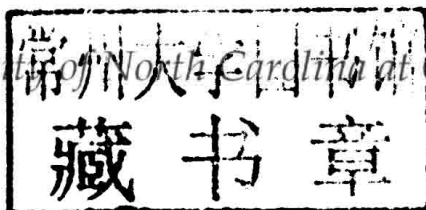 常州大学图书馆
ity of North Carolina at C
藏书章